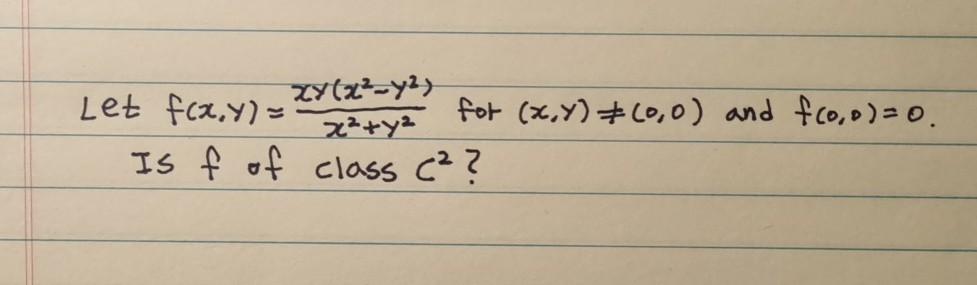 Let f(x,y) = xy(x²-y²)/(x²+y²) for (x,y) ≠ (0,0) and f(0,0)=0.
Is f of class C² ?